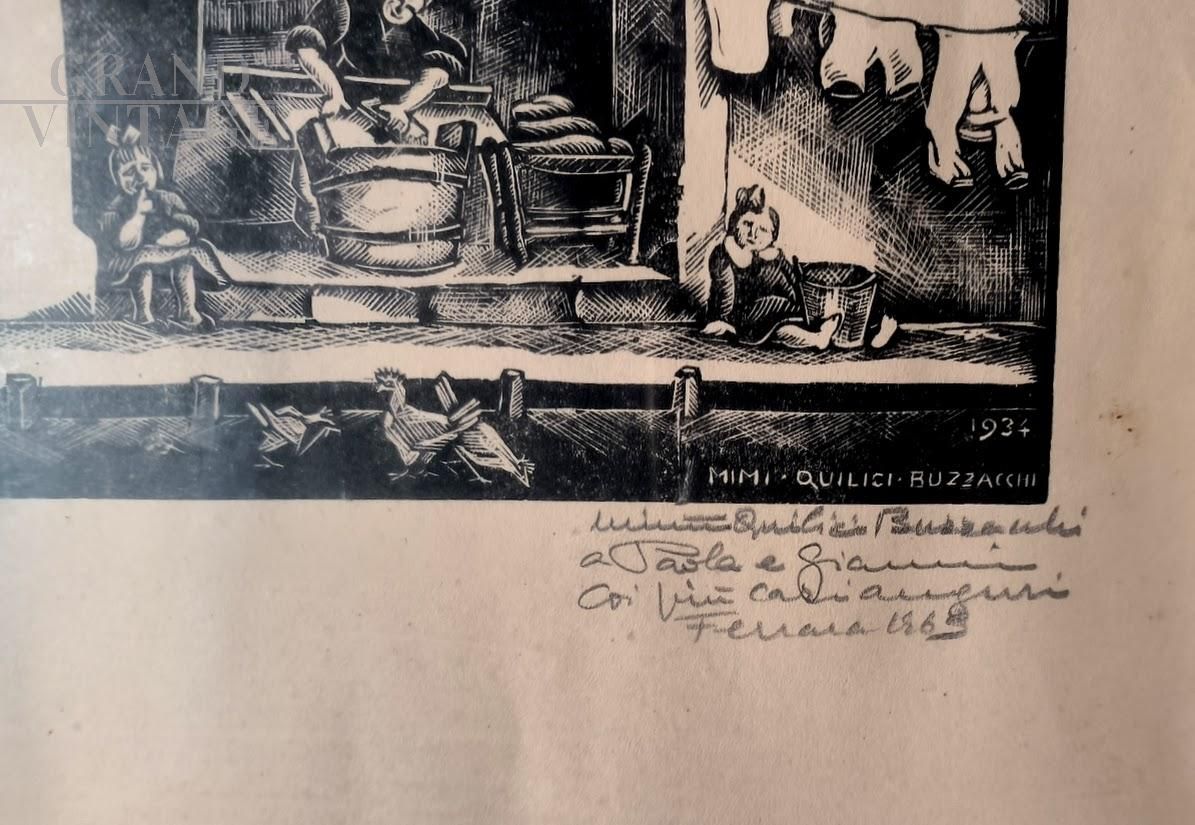 GRAND
VINTAGE
1934
MIMI · QUILICI · BUZZACCHI
Mimì Quilici Buzzacchi
a Paola e Gianni
coi più cari auguri
Ferrara 1969